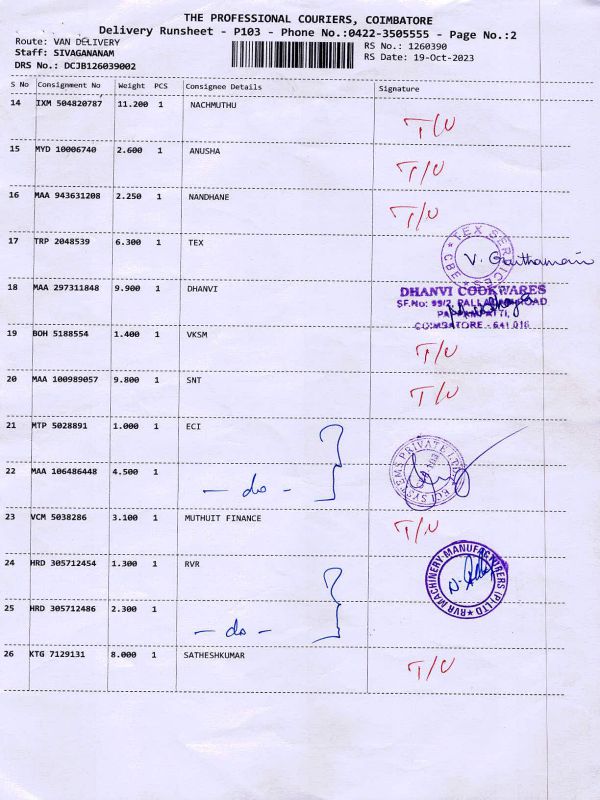 THE PROFESSIONAL COURIERS, COIMBATORE
Delivery Runsheet - P103 - Phone No.:0422-3505555 - Page No.:2
Route: VAN DELIVERY
RS No.: 1260390
Staff: SIVAGANANAM
RS Date: 19-Oct-2023
DRS No.: DCJB126039002
S No Consignment No Weight PCS Consignee Details Signature
14 IXM 504820787 11.200 1 NACHMUTHU T/U
15 MYD 10006740 2.600 1 ANUSHA T/U
16 MAA 943631208 2.250 1 NANDHANE T/U
17 TRP 2048539 6.300 1 TEX
TEX SERVICES CBE
18 MAA 297311848 9.900 1 DHANVI
DHANVI COOKWARES
SF.No: 99/2, ROAD
COIMBATORE - 641 016
19 BOH 5188554 1.400 1 VKSM T/U
20 MAA 100989057 9.800 1 SNT T/U
21 MTP 5028891 1.000 1 ECI
ECI SYSTEMS PRIVATE LTD
22 MAA 106486448 4.500 1 - do -
23 VCM 5038286 3.100 1 MUTHUIT FINANCE T/U
24 HRD 305712454 1.300 1 RVR
RVR MACHINERY MANUFACTURERS (P) LTD
25 HRD 305712486 2.300 1 - do -
26 KTG 7129131 8.000 1 SATHESHKUMAR T/U